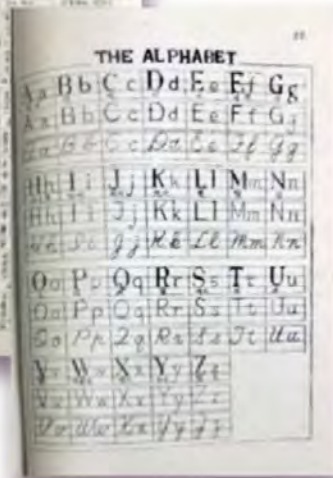 THE ALPHABET
Aa Bb Cc Dd Ee Ff Gg
Aa Bb Cc Dd Ee Ff Gg
Aa Bb Cc Dd Ee Ff Gg
Hh Ii Jj Kk Ll Mm Nn
Hh Ii Jj Kk Ll Mm Nn
Hh Ii Jj Kk Ll Mm Nn
Oo Pp Qq Rr Ss Tt Uu
Oo Pp Qq Rr Ss Tt Uu
Oo Pp Qq Rr Ss Tt Uu
Vv Ww Xx Yy Zz
Vv Ww Xx Yy Zz
Vv Ww Xx Yy Zz